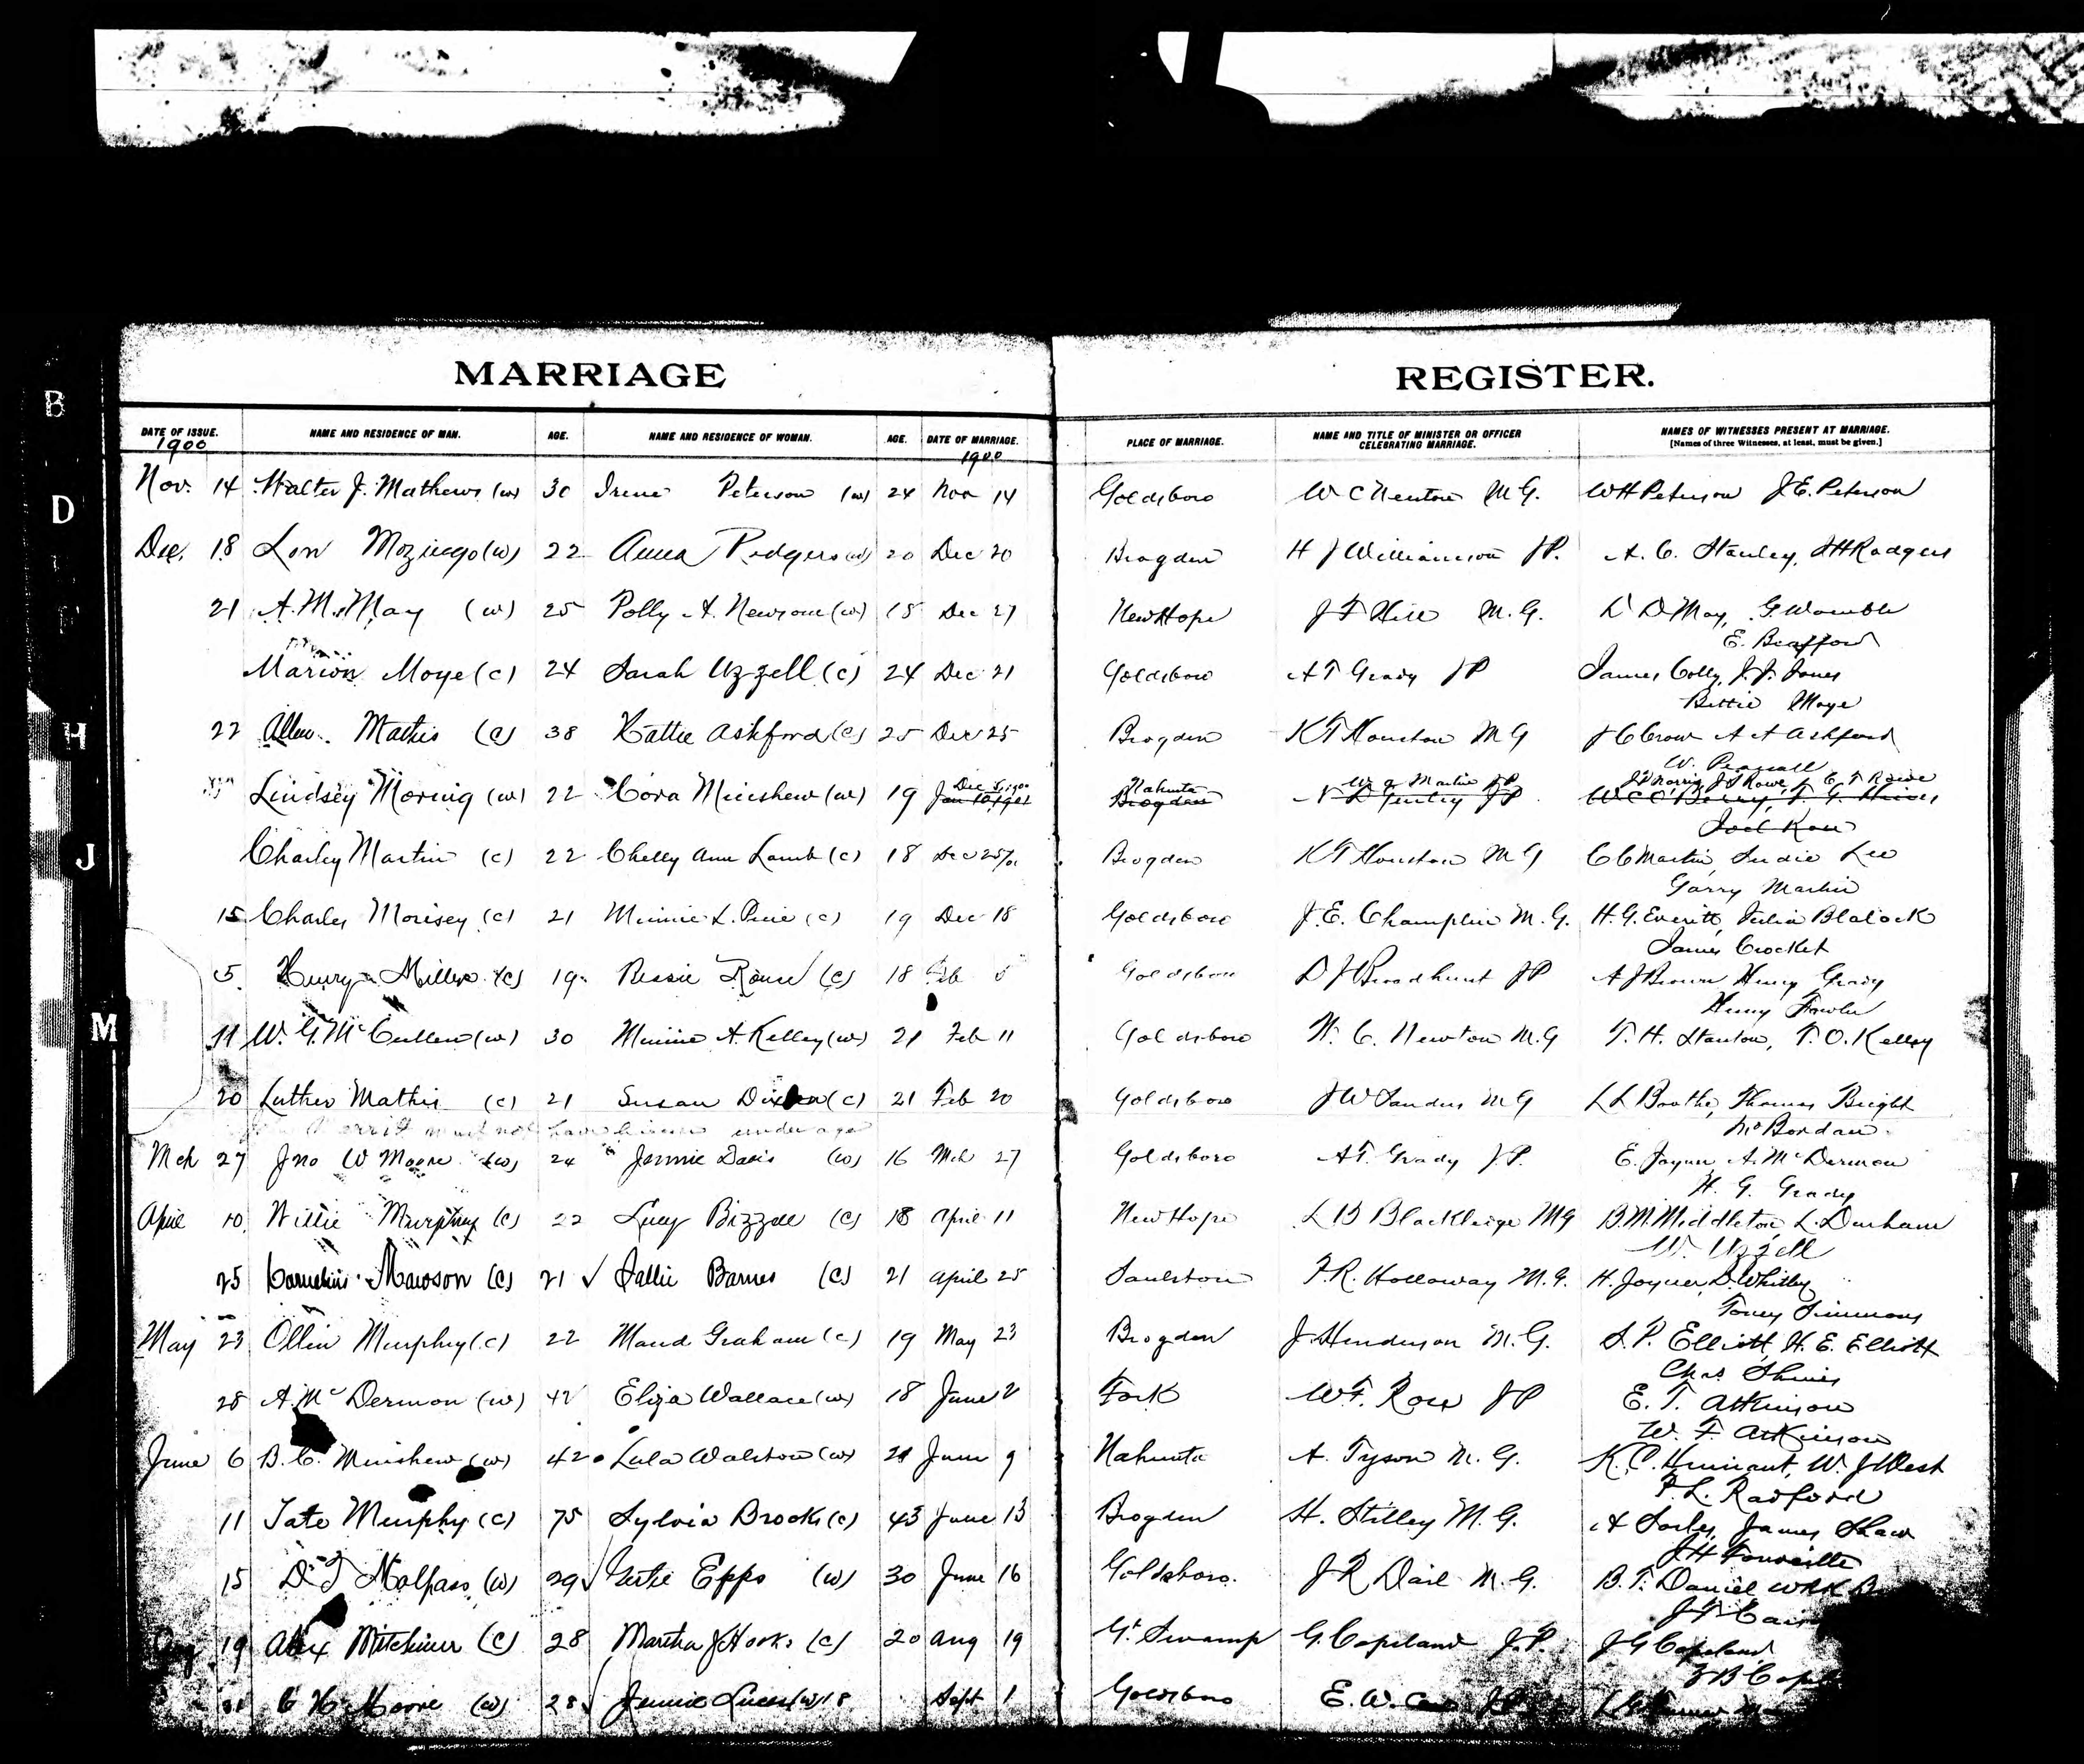 B
D
H
J
M
MARRIAGE REGISTER.
DATE OF ISSUE. NAME AND RESIDENCE OF MAN. AGE. NAME AND RESIDENCE OF WOMAN. AGE. DATE OF MARRIAGE. PLACE OF MARRIAGE. NAME AND TITLE OF MINISTER OR OFFICER CELEBRATING MARRIAGE. NAMES OF WITNESSES PRESENT AT MARRIAGE.
[Names of three Witnesses, at least, must be given.]
1900 1900
Nov. 14 Walter J. Mathews (w) 30 Irene Peterson (w) 24 Nov 14 Goldsboro W C Newton M G. W H Peterson J. E. Peterson
Dec. 18 Lon Mozingo (w) 22 Anna Rodgers (w) 20 Dec 20 Brogden H J Williamson J P. A. C. Stanley, J H Rodgers
21 A. M. May (w) 25 Polly A. Newsome (w) 18 Dec 27 New Hope J F Hill M. G. D D May, G Womble
E. Brafford
Marion Moye (c) 24 Sarah Uzzell (c) 24 Dec 21 Goldsboro A T Grady J P James Colly, J. J. Jones
Bettie Moye
22 Allen Mathis (c) 38 Hattie Ashford (c) 25 Dec 25 Brogden K T Houston M G J C Crow A A Ashford
W. Pearsall
Dec 1900 Nahunta W A Martin J P J S Rowe, E. T Rowe
Lindsey Moring (w) 22 Cora Minshew (w) 19 Jan 10 1901 Brogden J P
Joel Rose
Charley Martin (c) 22 Chelly Ann Lamb (c) 18 Dec 25/01 Brogden K T Houston M G C C Martin, Sudie Lee
Garry Martin
15 Charles Morisey (c) 21 Minnie L. (c) 19 Dec 18 Goldsboro J. E. Champlin M. G. H. G. Everitt, Julia Blalock
James Crocket
5 Henry Miller (c) 19 Bessie Rouse (c) 18 Feb 5 Goldsboro D J Broadhurst J P A J Brown Henry Grady
Henry Fowler
11 W. G. McCullen (w) 30 Minnie A. Kelley (w) 21 Feb 11 Goldsboro W. C. Newton M. G T. H. Stanton, T. O. Kelley
20 Luther Mathis (c) 21 Susan (c) 21 Feb 20 Goldsboro J W Sanders M G L L Boothe, Thomas Bright
must not have license under age Bordan
Mch 27 Jno W Moore (w) 24 Jennie Davis (w) 16 Mch 27 Goldsboro A T. Grady J P. E. Joyner, A. McDermon
H. G. Grady
April 10 Willie Murphey (c) 22 Lucy Bizzell (c) 18 April 11 New Hope L B Blackledge M G B. M. Middleton L. Durham
W. Uzzell
25 Cornelius Mawson (c) 21 ✓ Sallie Barnes (c) 21 April 25 Saulston F. R. Holloway M. G. H. Joyner, D. Whitley
Toney Simmons
May 23 Ollin Murphey (c) 22 Maud Graham (c) 19 May 23 Brogden J. Henderson M. G. S. P. Elliott, H. E. Elliott
Chas
28 A. McDermon (w) 42 Eliza Wallace (w) 18 June 2 Fork W. F. Rose J P E. T. Atkinson
W. F. Atkinson
June 6 B. C. Minshew (w) 42 Lula Walston (w) 21 June 9 Nahunta A. Tyson M. G. K. C. Hinnant, W. J West
P. L. Radford
11 Tate Murphy (c) 75 Sylvia Brooks (c) 43 June 13 Brogden H. Stilley M. G. James Shaw
J H Fonvielle
15 D J Malpass (w) 29 ✓ Epps (w) 30 June 16 Goldsboro. J R Dail M. G. B. T. Daniel
J F Cain
Aug 19 Alex Mitchiner (c) 28 Martha J Hooks (c) 20 Aug 19 Gt Swamp G. Copeland J. P. J G Copeland
31 Moore (w) 28 ✓ Jennie Lucas (w) 18 Sept 1 Goldsboro E. W. J P